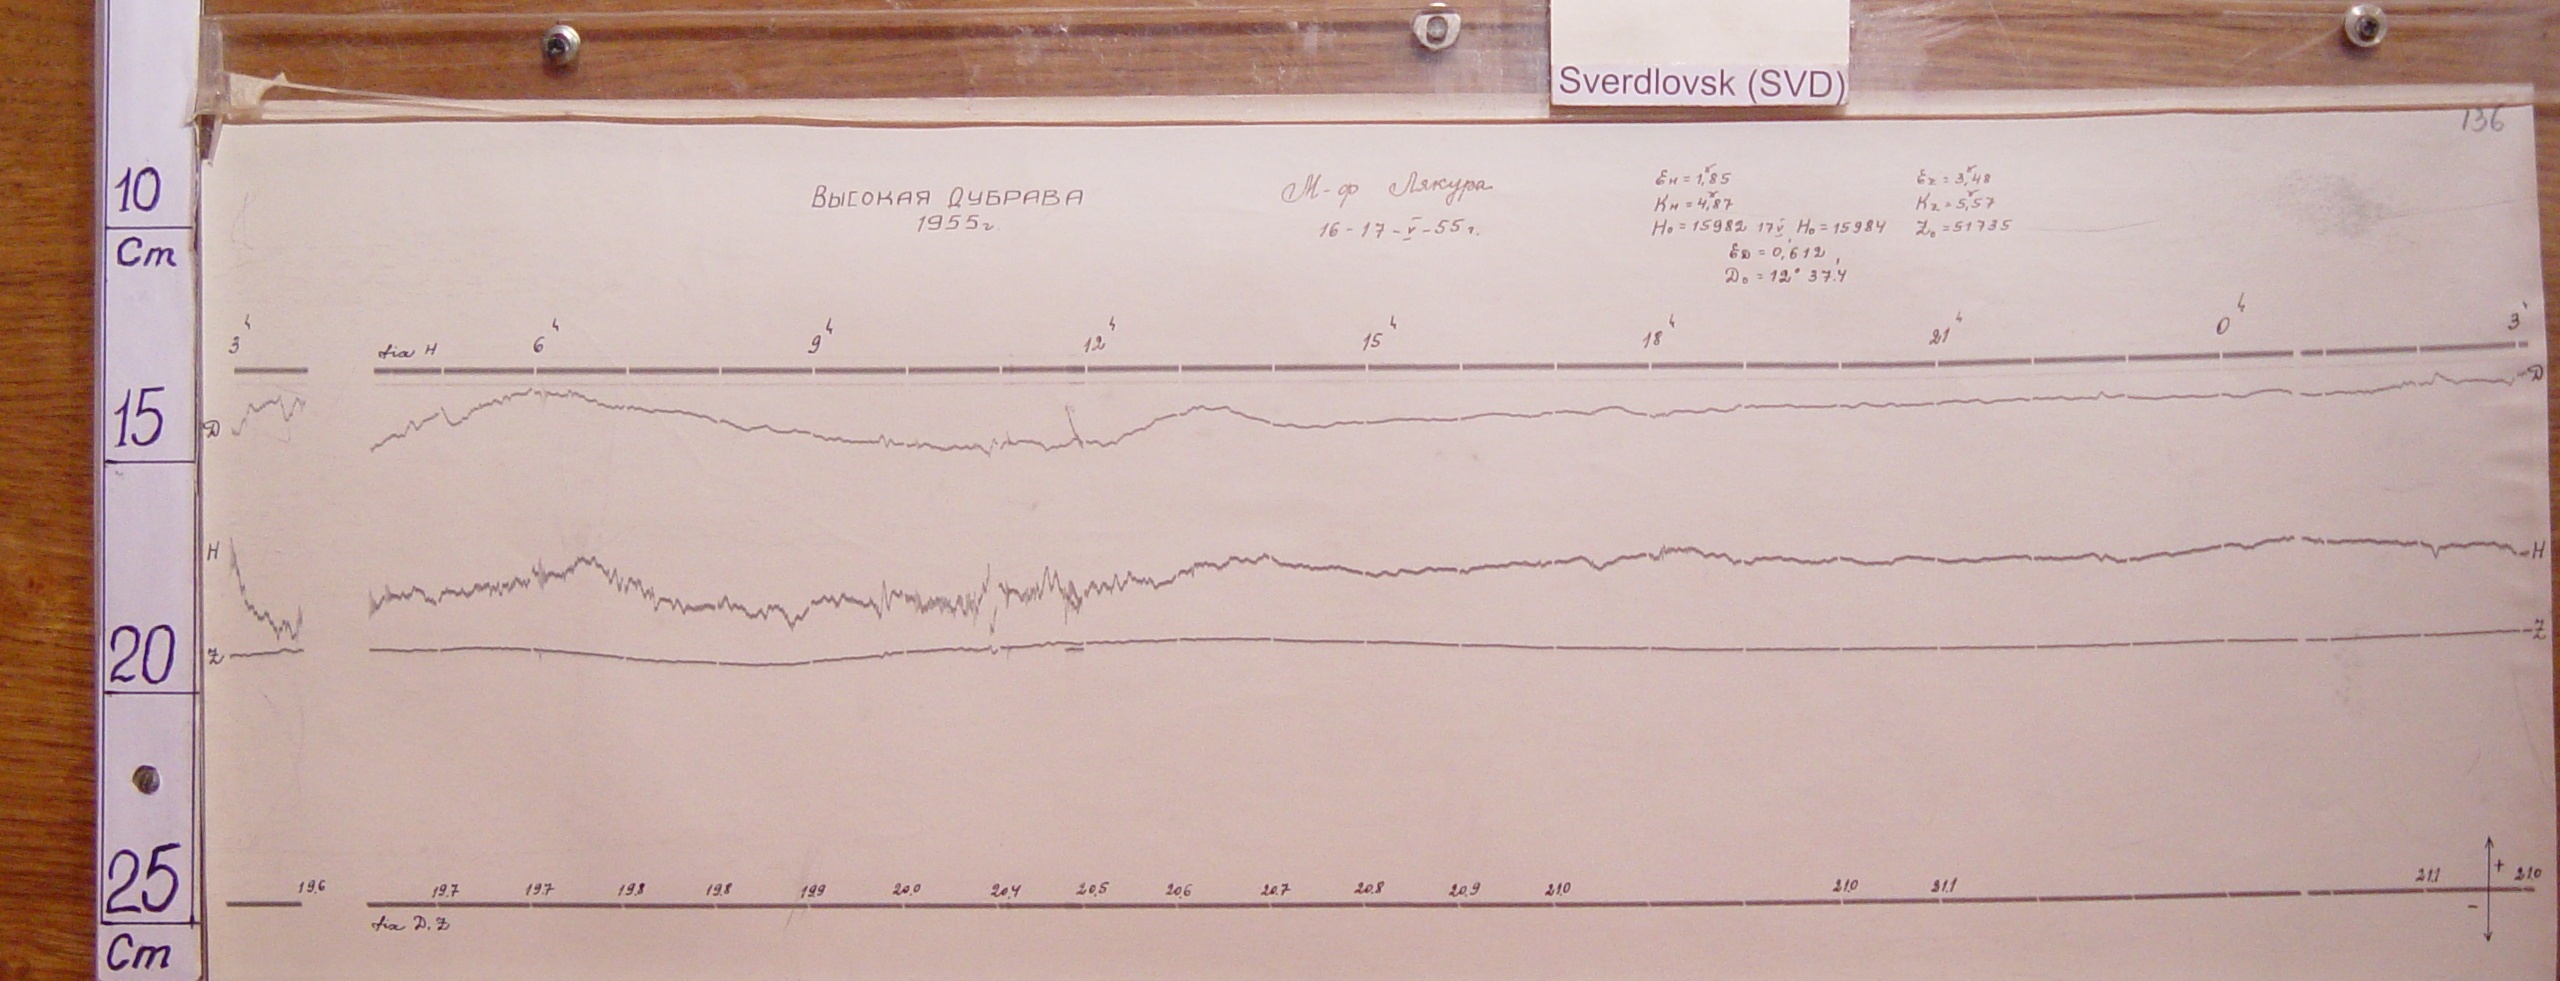 Sverdlovsk (SVD)
136
10
Cm
15
20
25
Cm
ВЫСОКАЯ ДУБРАВА
1955г.
М-ф Лякура
16-17-V-55г.
Eн=1,85
Kн=4,87
H₀=15982 17V H₀=15984
Ez=3,48
Kz=5,57
Z₀=51735
ED=0,612
D₀=12° 37.4
3ч 6ч 9ч 12ч 15ч 18ч 21ч 0ч 3ч
для H
D D
H H
Z Z
19.6 19.7 19.7 19.8 19.8 19.9 20.0 20.4 20.5 20.6 20.7 20.8 20.9 21.0 21.0 21.1 21.1 21.0
для D.Z
+
-